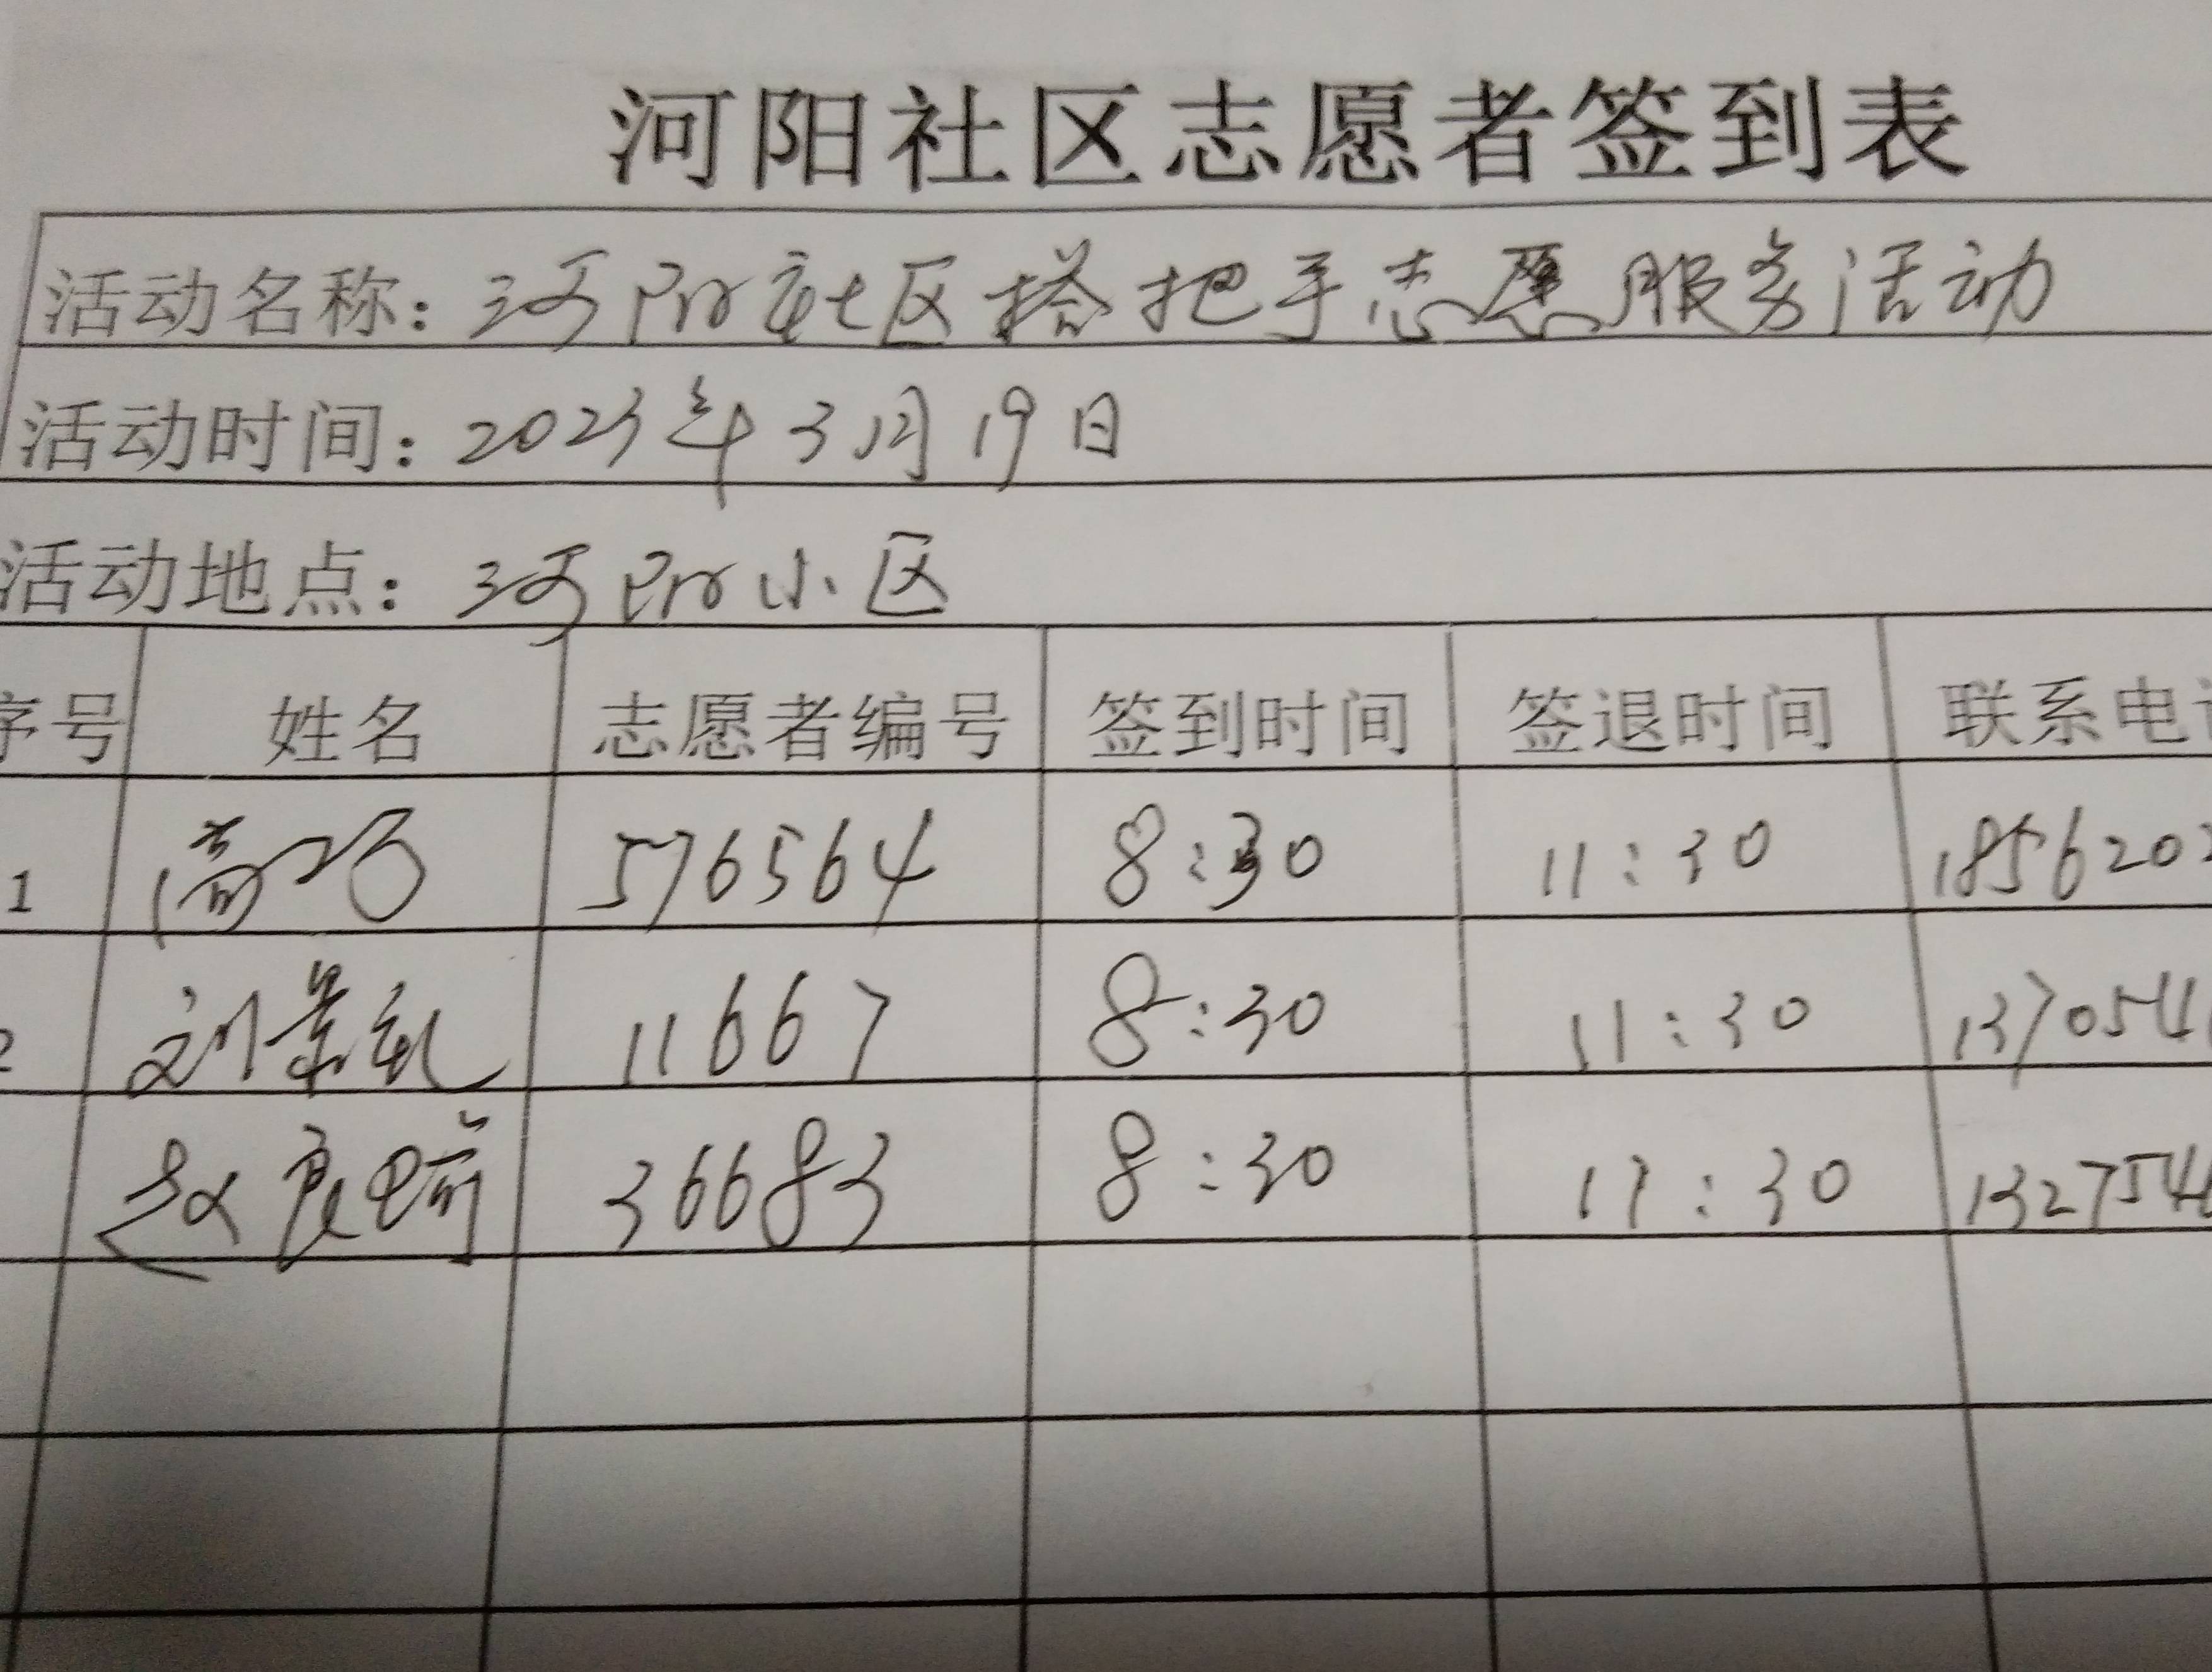 河阳社区志愿者签到表
活动名称：河阳社区搭把手志愿服务活动
活动时间：2023年3月19日
活动地点：河阳小区
序号 姓名 志愿者编号 签到时间 签退时间 联系电
1 576564 8:30 11:30 1856202
2 刘景虬 11667 8:30 11:30 1370541
赵良 36683 8:30 11:30 1327541